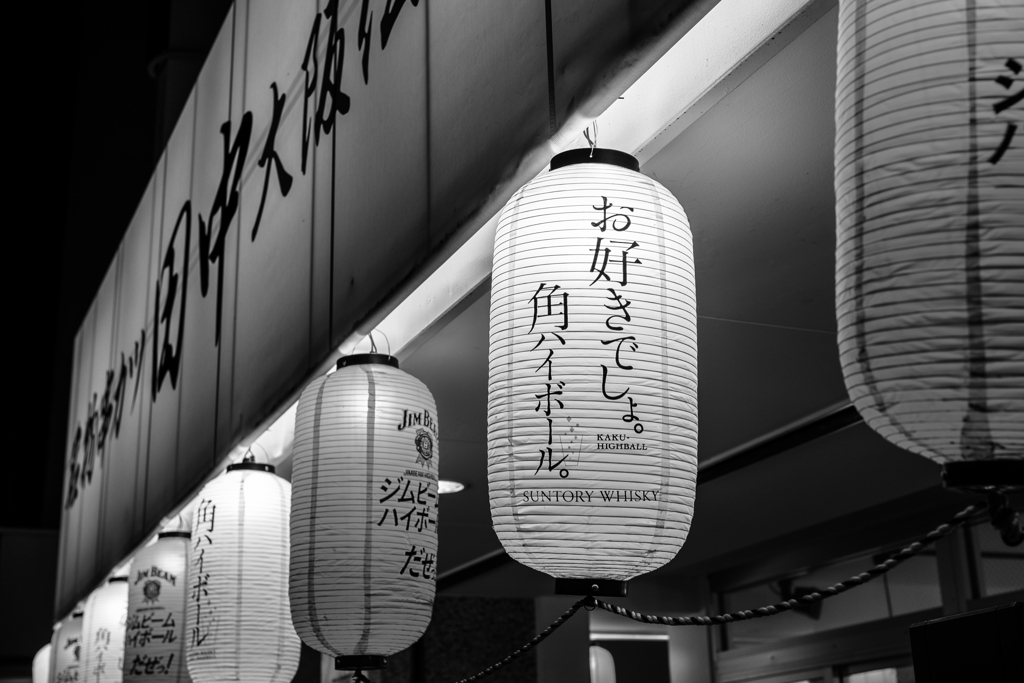 お好きでしょ。
角ハイボール。
KAKU-
HIGHBALL
SUNTORY WHISKY
JIM BEAM
ジムビーム
ハイボール
だぜっ!
角ハイボール
JIM BEAM
ジムビーム
ハイボール
だぜっ!
串カツ田中大阪伝
ジ